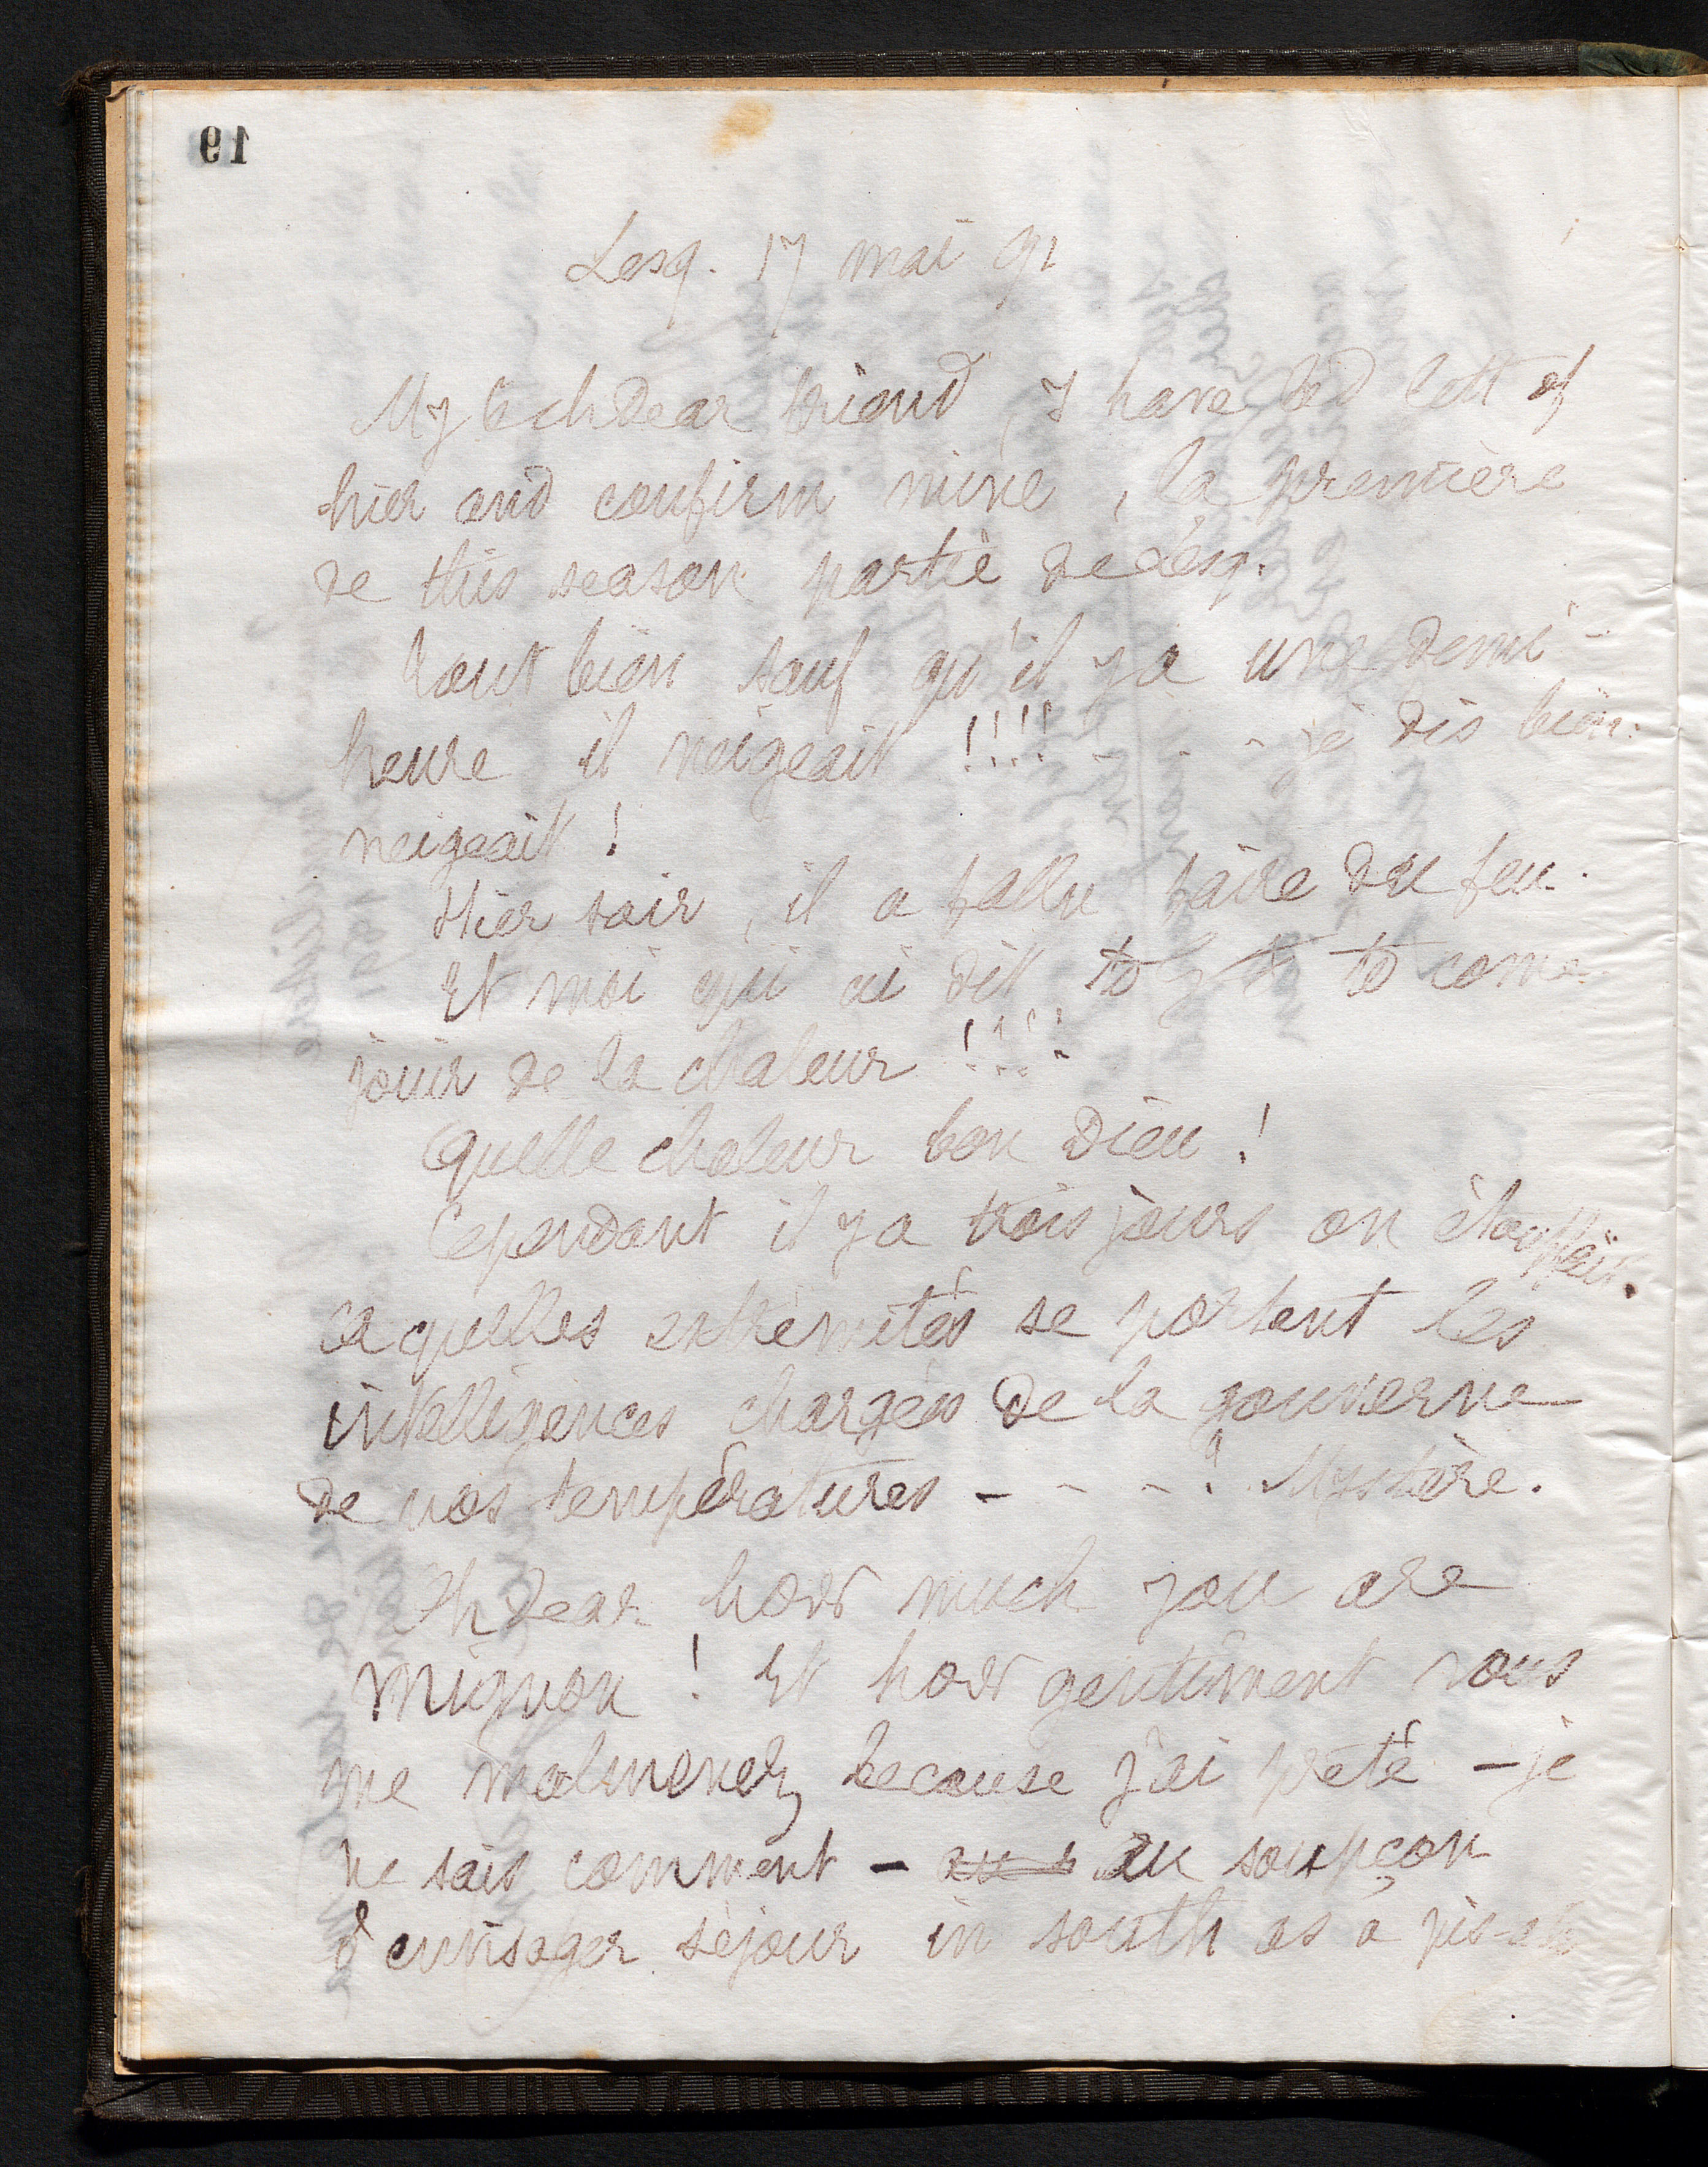 19
Lesq. 17 mai 91
My dear friend, I have lett of
hier and confirm mine, la première
de this season partie de Lesq.
Tout bien sauf qu'il y a une demi-
heure il neigeait !!!! - - - je dis bien:
neigeait !
Hier soir, il a fallu faire du feu.
Et moi qui ai dit to to come
jouir de la chaleur !!!!
Quelle chaleur bon Dieu !
Cependant il y a trois jours on étouffait.
à quelles extrémités se portent les
intelligences chargées de la gouverne
de nos températures - - - -? Mystère.
Ah dear how much you are
mignon ! Et how gentiment vous
me malmenez because j'ai prêté - je
ne sais comment - au soupçon
d'envisager séjour in south as a pis-